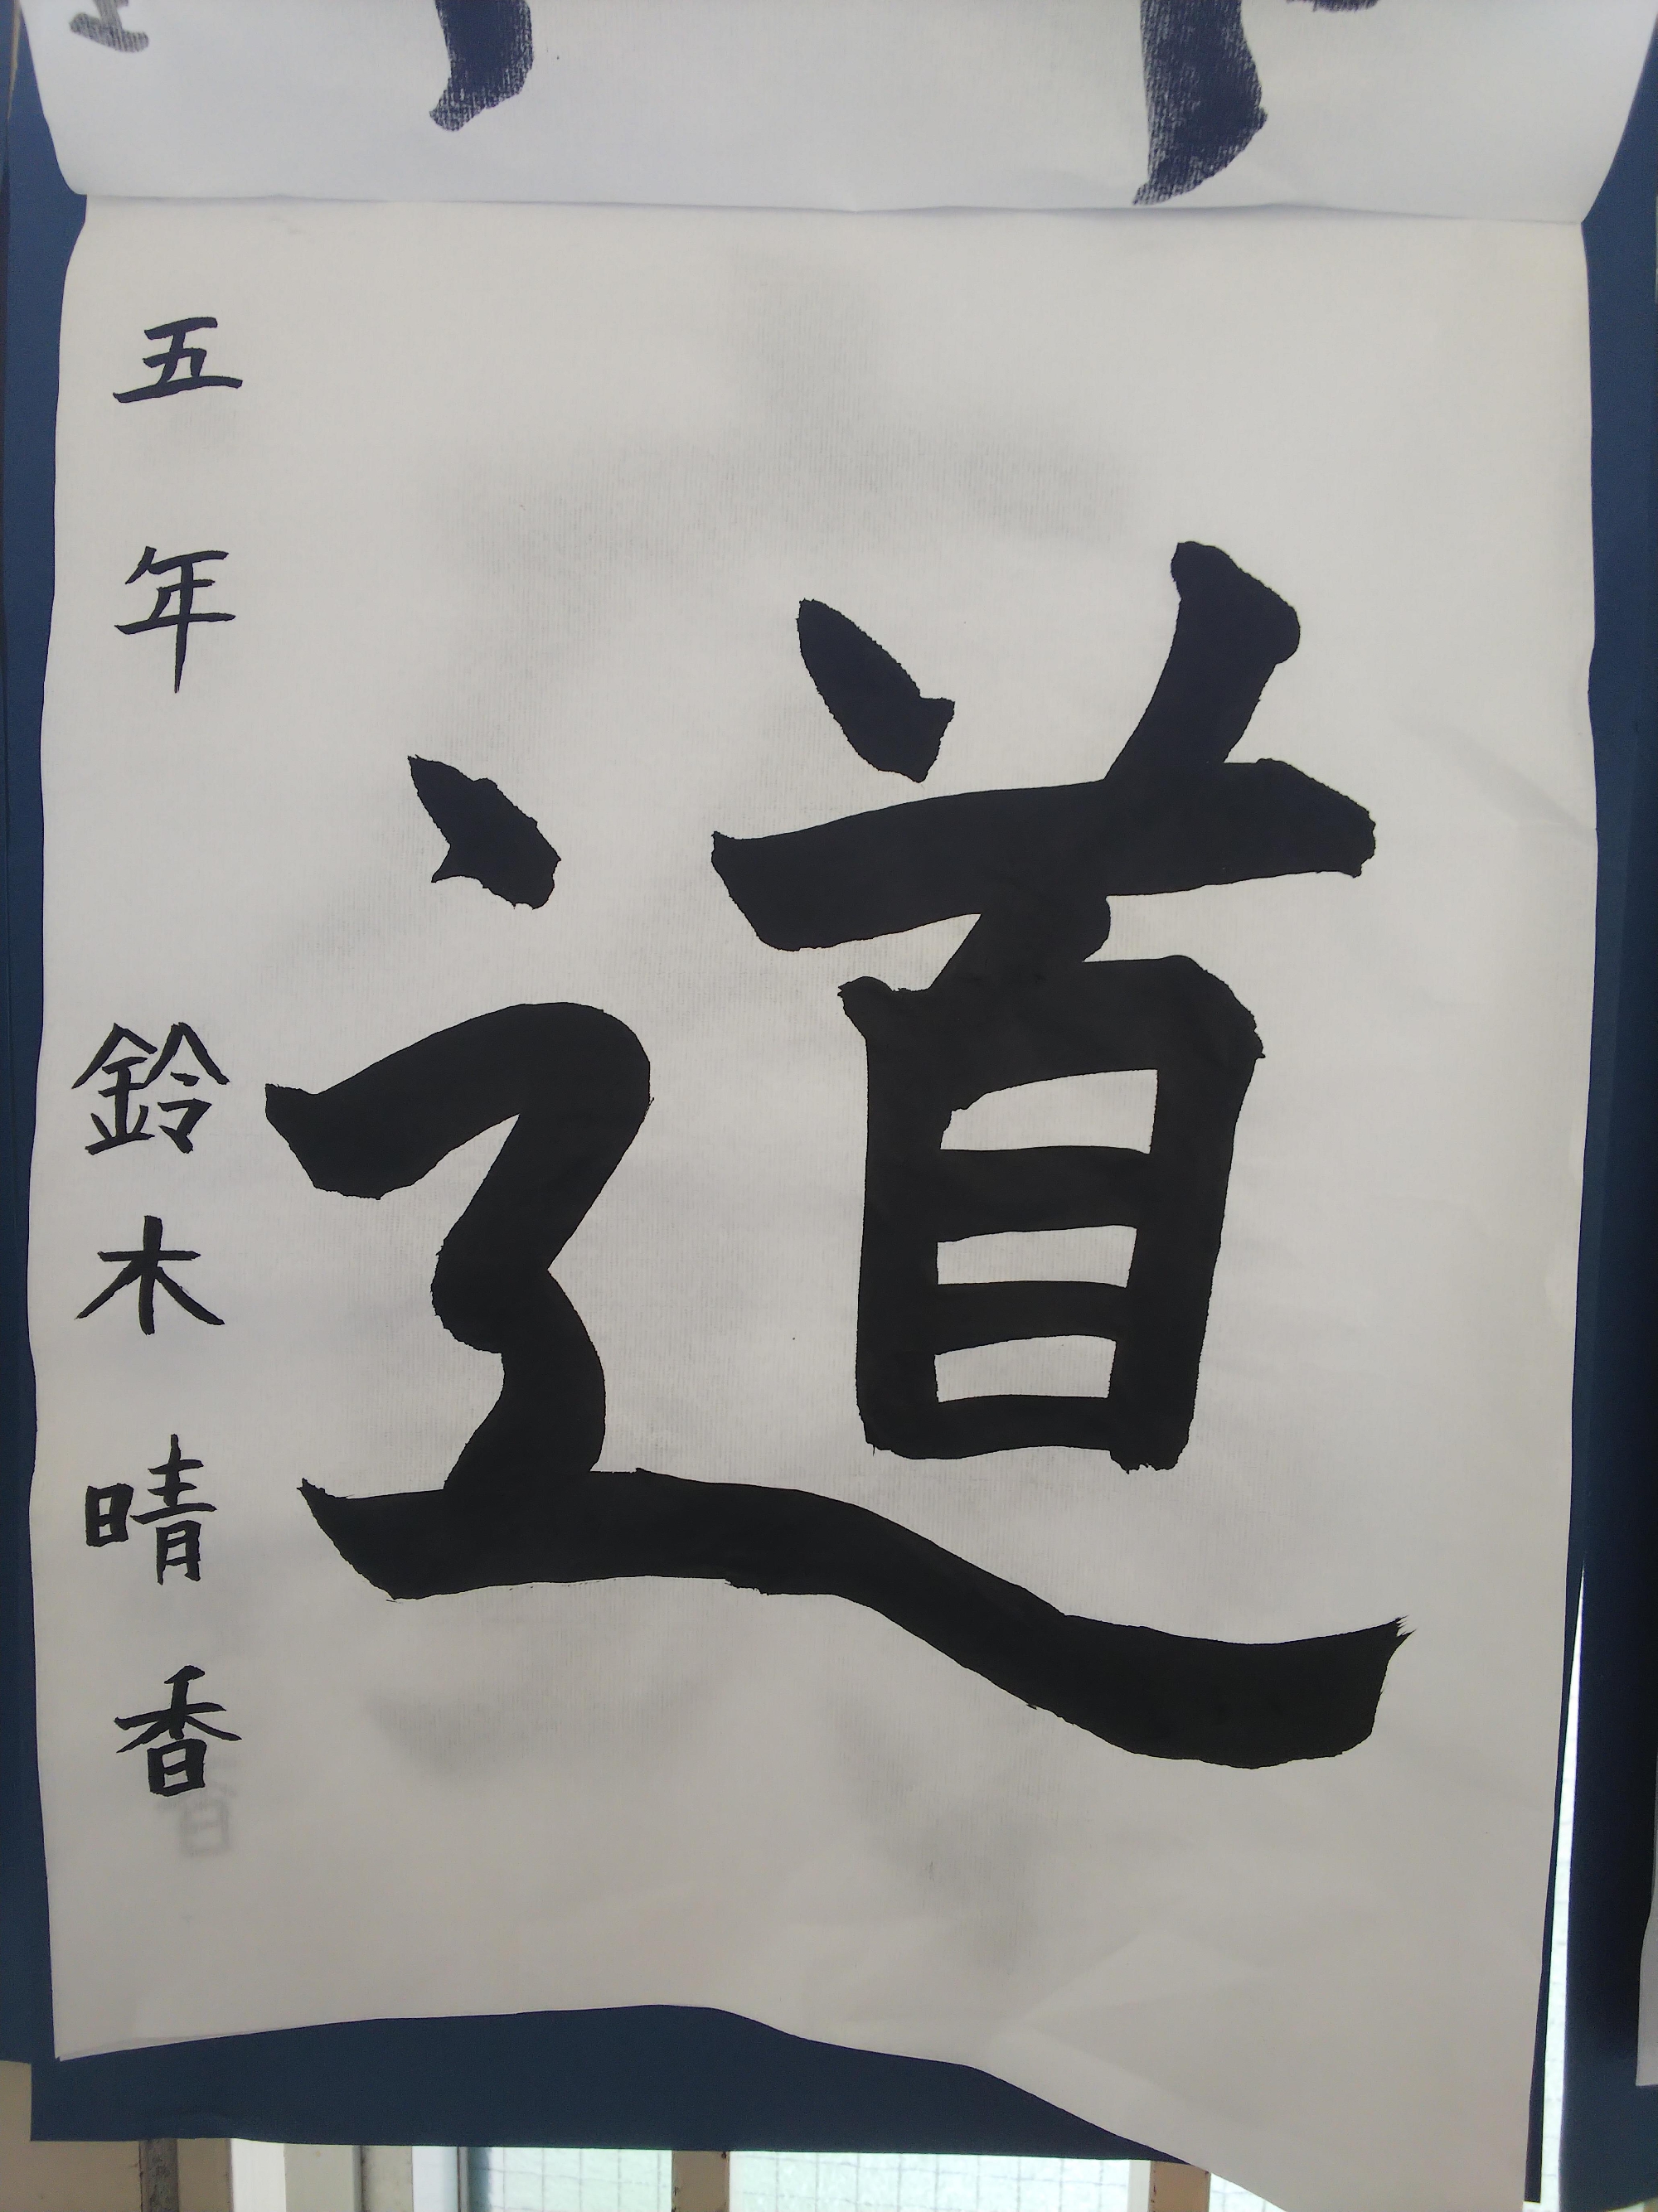 道
五年 鈴木晴香